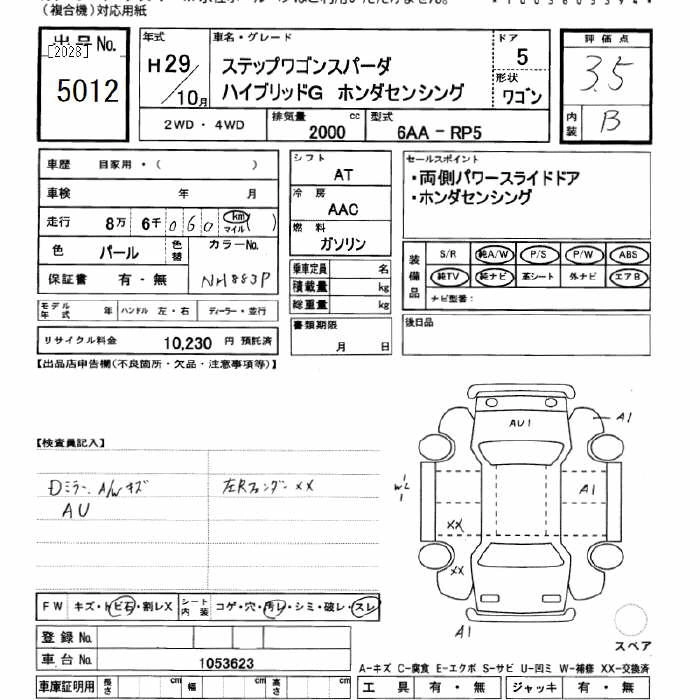 (複合機)対応用紙
出品No.
[2023]
5012
年式
H29/10月
車名・グレード
ステップワゴンスパーダ
ハイブリッドG ホンダセンシング
ドア
5
形状
ワゴン
2WD・4WD
排気量 2000 cc
型式 6AA-RP5
評価点
3.5
内装 B
車歴 自家用・( )
車検 年 月
走行 8万 6千 0 6 0 km マイル ( )
色 パール 色替 カラーNo. NH883P
保証書 有・無
モデル年式 年 ハンドル 左・右 ディーラー・並行
リサイクル料金 10,230 円 預託済
シフト
AT
冷房
AAC
燃料
ガソリン
乗車定員 名
積載量 kg
総重量 kg
書類期限
月 日
セールスポイント
・両側パワースライドドア
・ホンダセンシング
装備品 S/R 純A/W P/S P/W ABS
純TV 純ナビ 革シート 外ナビ エアB
ナビ型番:
後日品
【出品店申告欄(不良箇所・欠品・注意事項等)】
【検査員記入】
Dミラー、A/Wキズ
AU
左Rフェンダー XX
AU1
A1
A1
XX
XX
A1
スペア
FW キズ・トビ石・割レX シート内装 コゲ・穴・汚レ・シミ・破レ・スレ
登録No.
車台No. 1053623
車庫証明用 長さ cm 幅 cm 高さ cm
A-キズ C-腐食 E-エクボ S-サビ U-凹ミ W-補修 XX-交換済
工具 有・無 ジャッキ 有・無